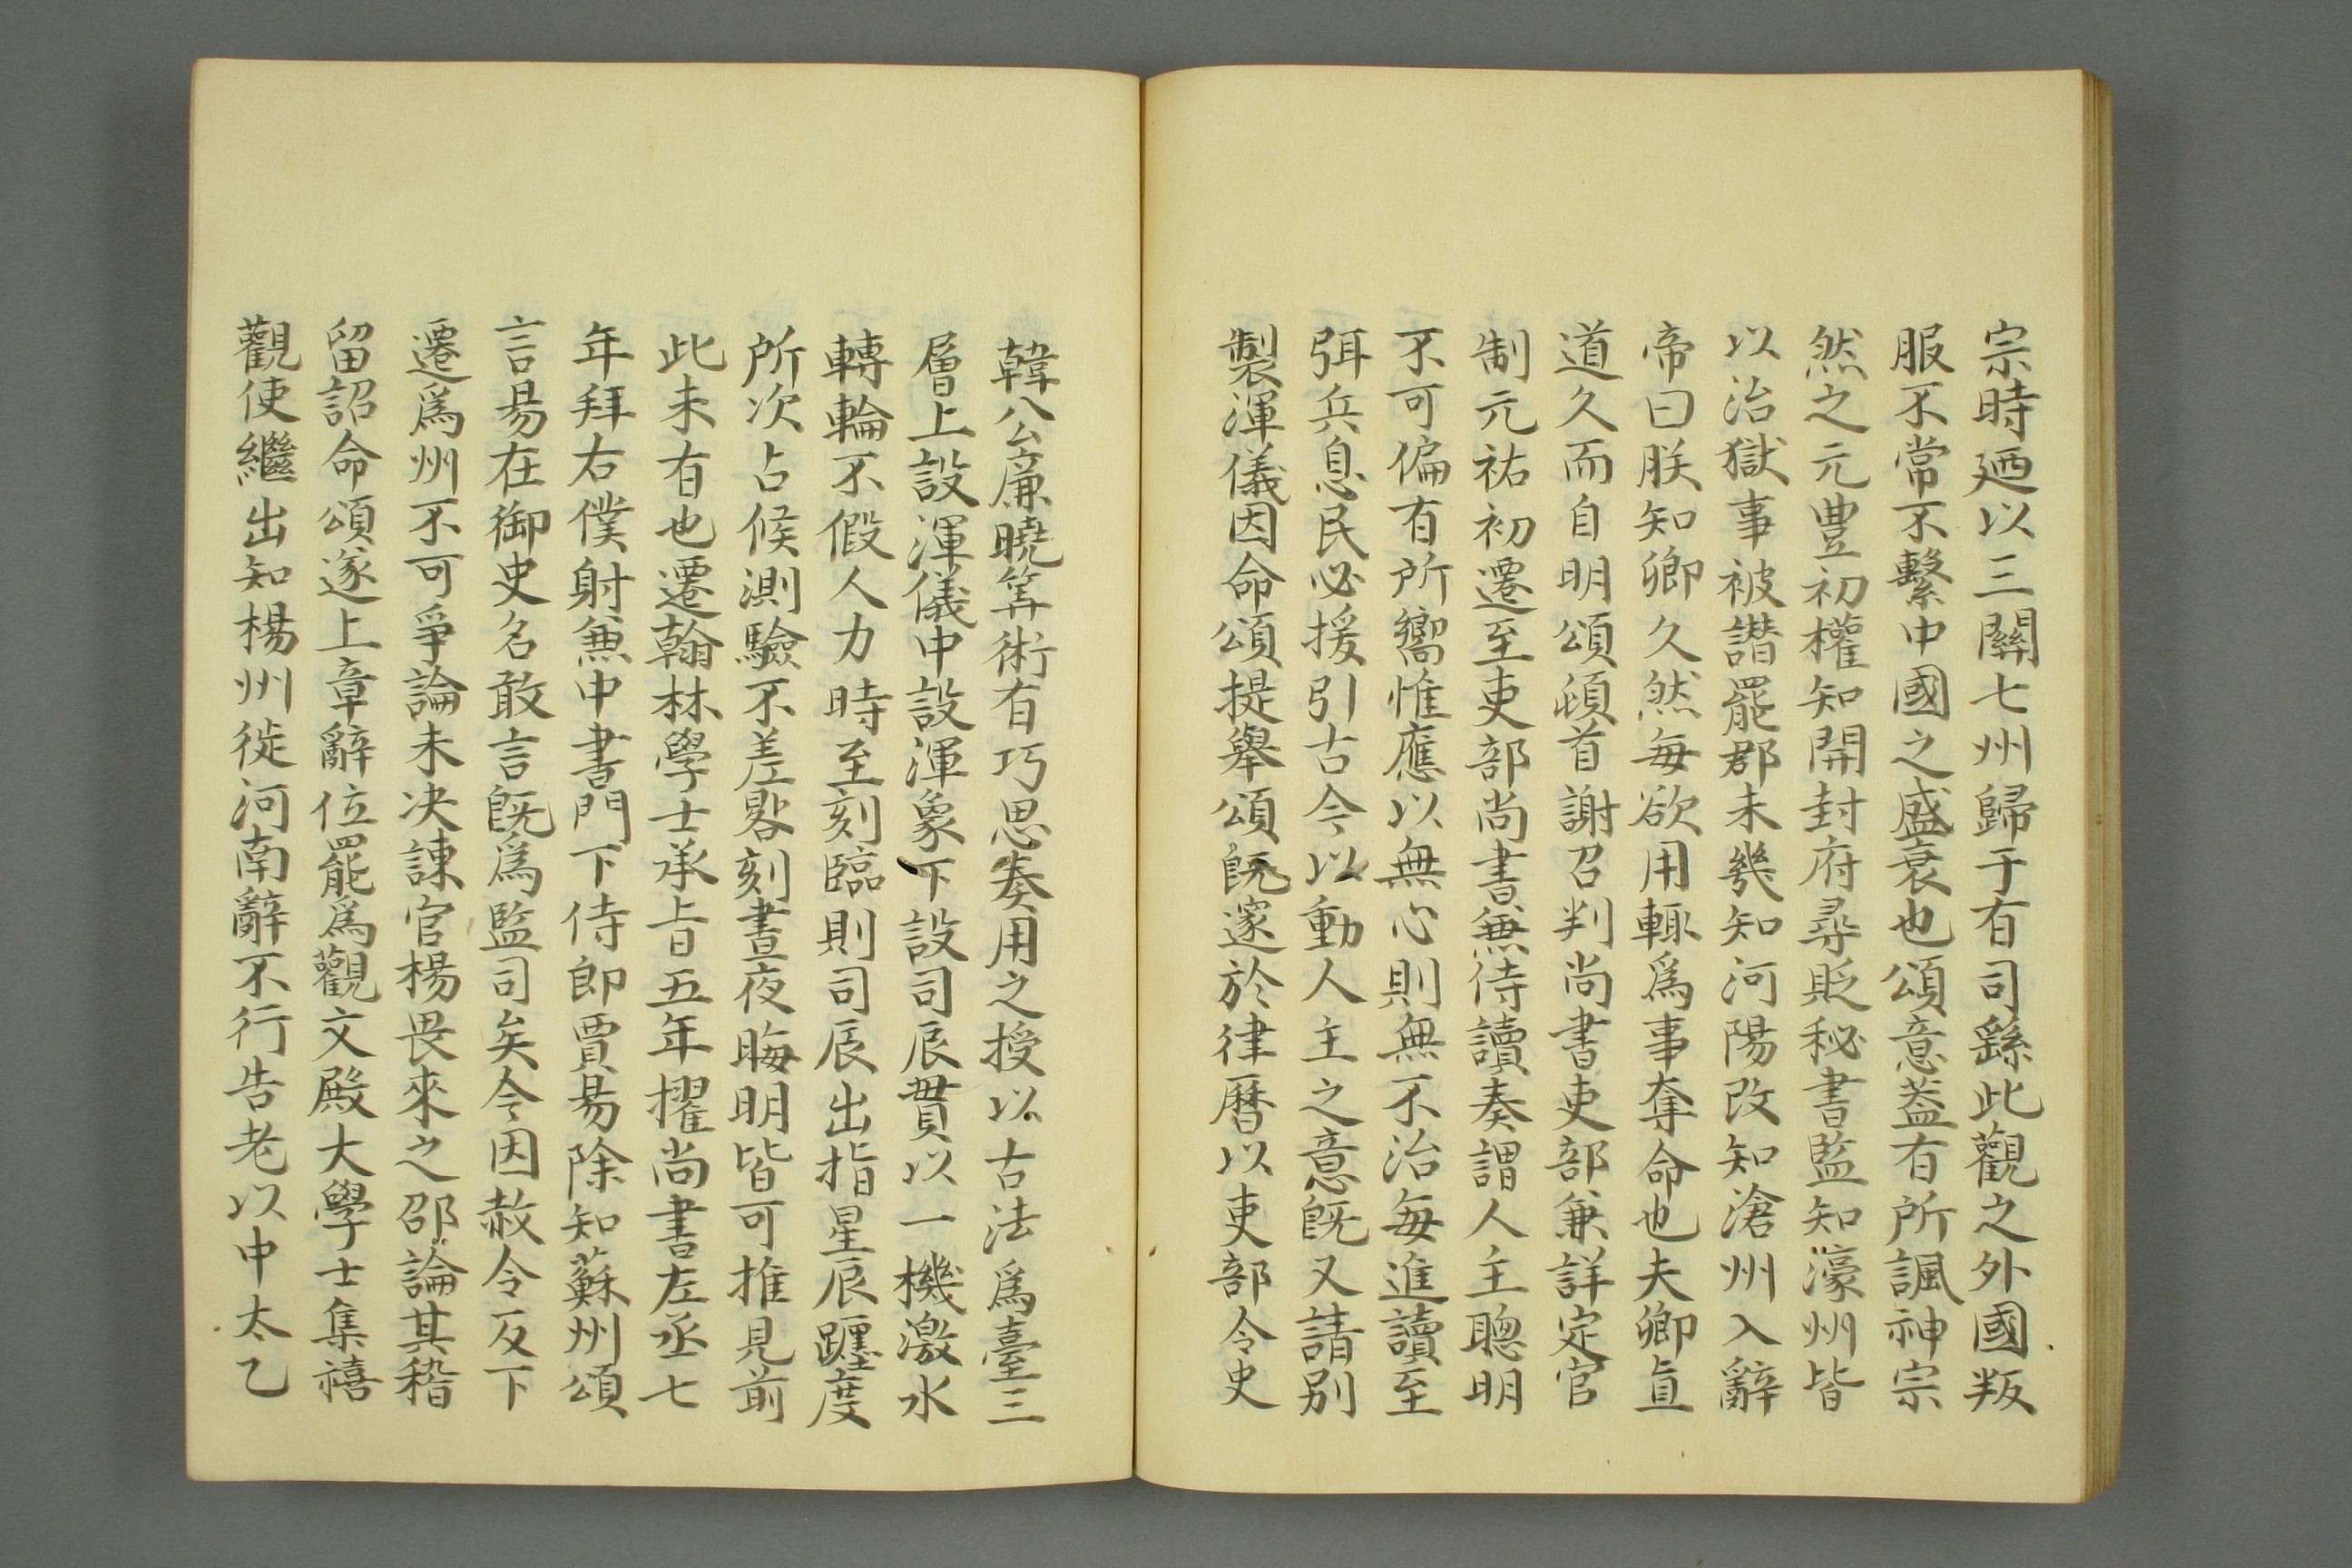 宗時廼以三關七州歸于有司繇此觀之外國叛
服不常不繫中國之盛衰也頌意葢有所諷神宗
然之元豐初權知開封府尋貶秘書監知濠州皆
以治獄事被譖罷郡未幾知河陽改知滄州入辭
帝曰朕知卿久然每欲用輒爲事奪命也夫卿直
道久而自明頌頓首謝召判尚書吏部兼詳定官
制元祐初遷至吏部尚書兼侍讀奏謂人主聰明
不可偏有所嚮惟應以無心則無不治每進讀至
弭兵息民必援引古今以動人主之意旣又請别
製渾儀因命頌提舉頌旣邃於律曆以吏部令史
韓公廉曉筭術有巧思奏用之授以古法爲臺三
層上設渾儀中設渾象下設司辰貫以一機激水
轉輪不假人力時至刻臨則司辰出指星辰躔度
所次占候測驗不差晷刻晝夜晦明皆可推見前
此未有也遷翰林學士承旨五年擢尚書左丞七
年拜右僕射兼中書門下侍郎賈易除知蘇州頌
言易在御史名敢言旣爲監司矣今因赦令反下
遷爲州不可爭論未决諫官楊畏來之邵論其稽
留詔命頌遂上章辭位罷爲觀文殿大學士集禧
觀使繼出知楊州徙河南辭不行告老以中太乙